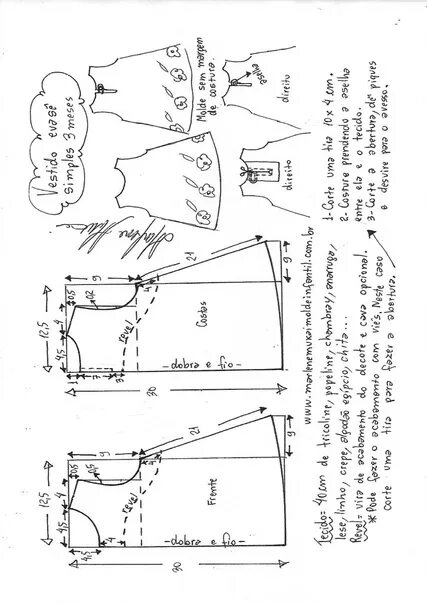 Vestido evasê
simples 3 meses
Marlene Mukai
12,5
4,5
4
0,5
9
0,5
21
revel
4,5
4
Frente
9
-dobra e fio-
30
12,5
4,5
4
0,5
9
0,2
21
4
revel
1
3
Costas
9
-dobra e fio-
30
Molde sem margem
de costura.
aselha
direito
direito
www.marlenemukaimoldeinfantil.com.br
Tecido= 40cm de tricoline, popeline, chambray, anarruga,
lese, linho, crepe, algodão egípcio, chita...
Revel= vira de acabamento do decote e cava opcional.
*Pode fazer o acabamento com viés. Neste caso
corte uma tira para fazer a abertura.
1- Corte uma tira 10 x 4 cm.
2- Costure prendendo a aselha
entre ela e o tecido.
3- Corte a abertura, dê piques
e desvire para o avesso.